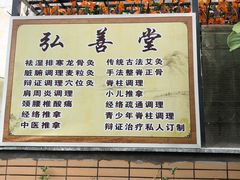 弘善堂
祛湿排寒龙骨灸
脏腑调理麦粒灸
辩证调理脊柱灸
肩周炎调理
颈腰椎酸痛
经络推拿
中医推拿
传统古法艾灸
手法整脊正骨
脊柱调理
小儿推拿
经络疏通调理
青少年脊柱调理
辩证治疗私人订制